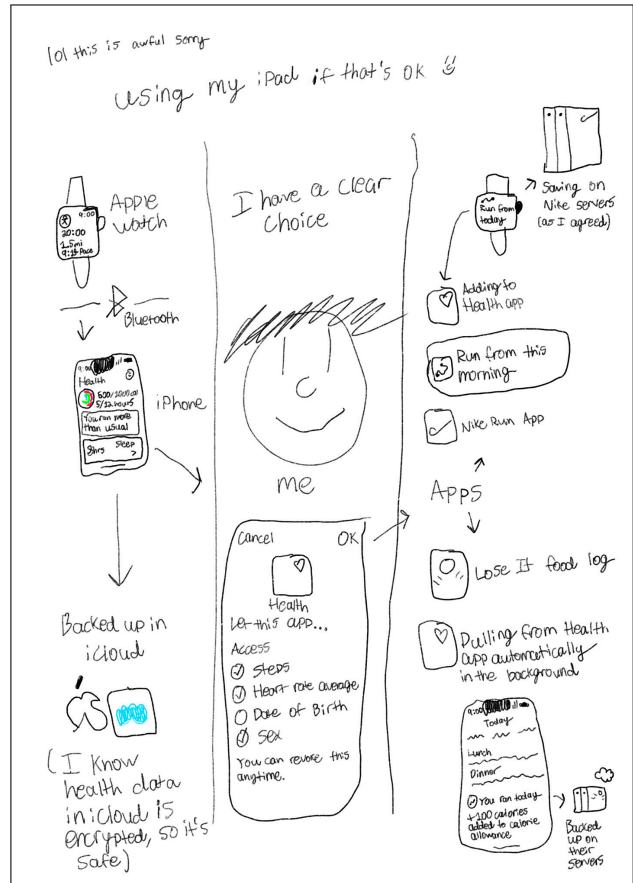 lol this is awful sorry
using my iPad if that's ok
Apple
watch
9:00
20:00
1.5mi
9:15 Pace
Bluetooth
9:00
Health
5/12 hours
You ran more
than usual
8hrs Sleep >
iPhone
Backed up in
iCloud
(I know
health data
in iCloud is
encrypted, so it's
safe)
I have a clear
choice
me
Cancel OK
Health
Let this app...
Access
Steps
Heart rate average
Date of Birth
Sex
You can revoke this
anytime.
Run from
today
Saving on
Nike servers
(as I agreed)
Adding to
Health app
Run from this
morning
Nike Run App
Apps
Lose It food log
Pulling from Health
app automatically
in the background
9:00
Today
Lunch
Dinner
You ran today
+100 calories
added to calorie
allowance
Backed
up on
their
servers